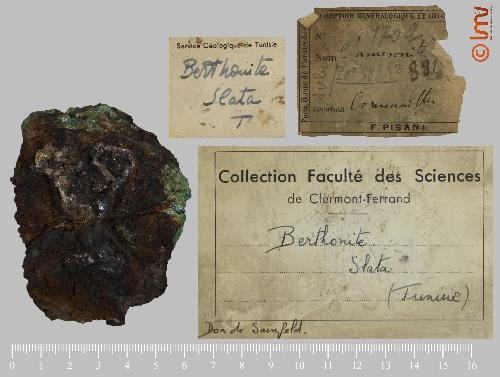 Service Géologique de Tunisie
Berthonite
Slata
T
COMPTOIR MINÉRALOGIQUE ET GÉO
N°
Nom
Location Cornouailles
F. PISANI
Collection Faculté des Sciences
de Clermont-Ferrand
Berthonite
Slata
(Tunisie)
Don de Sainfeld.
0 1 2 3 4 5 6 7 8 9 10 11 12 13 14 15 16
© lmv